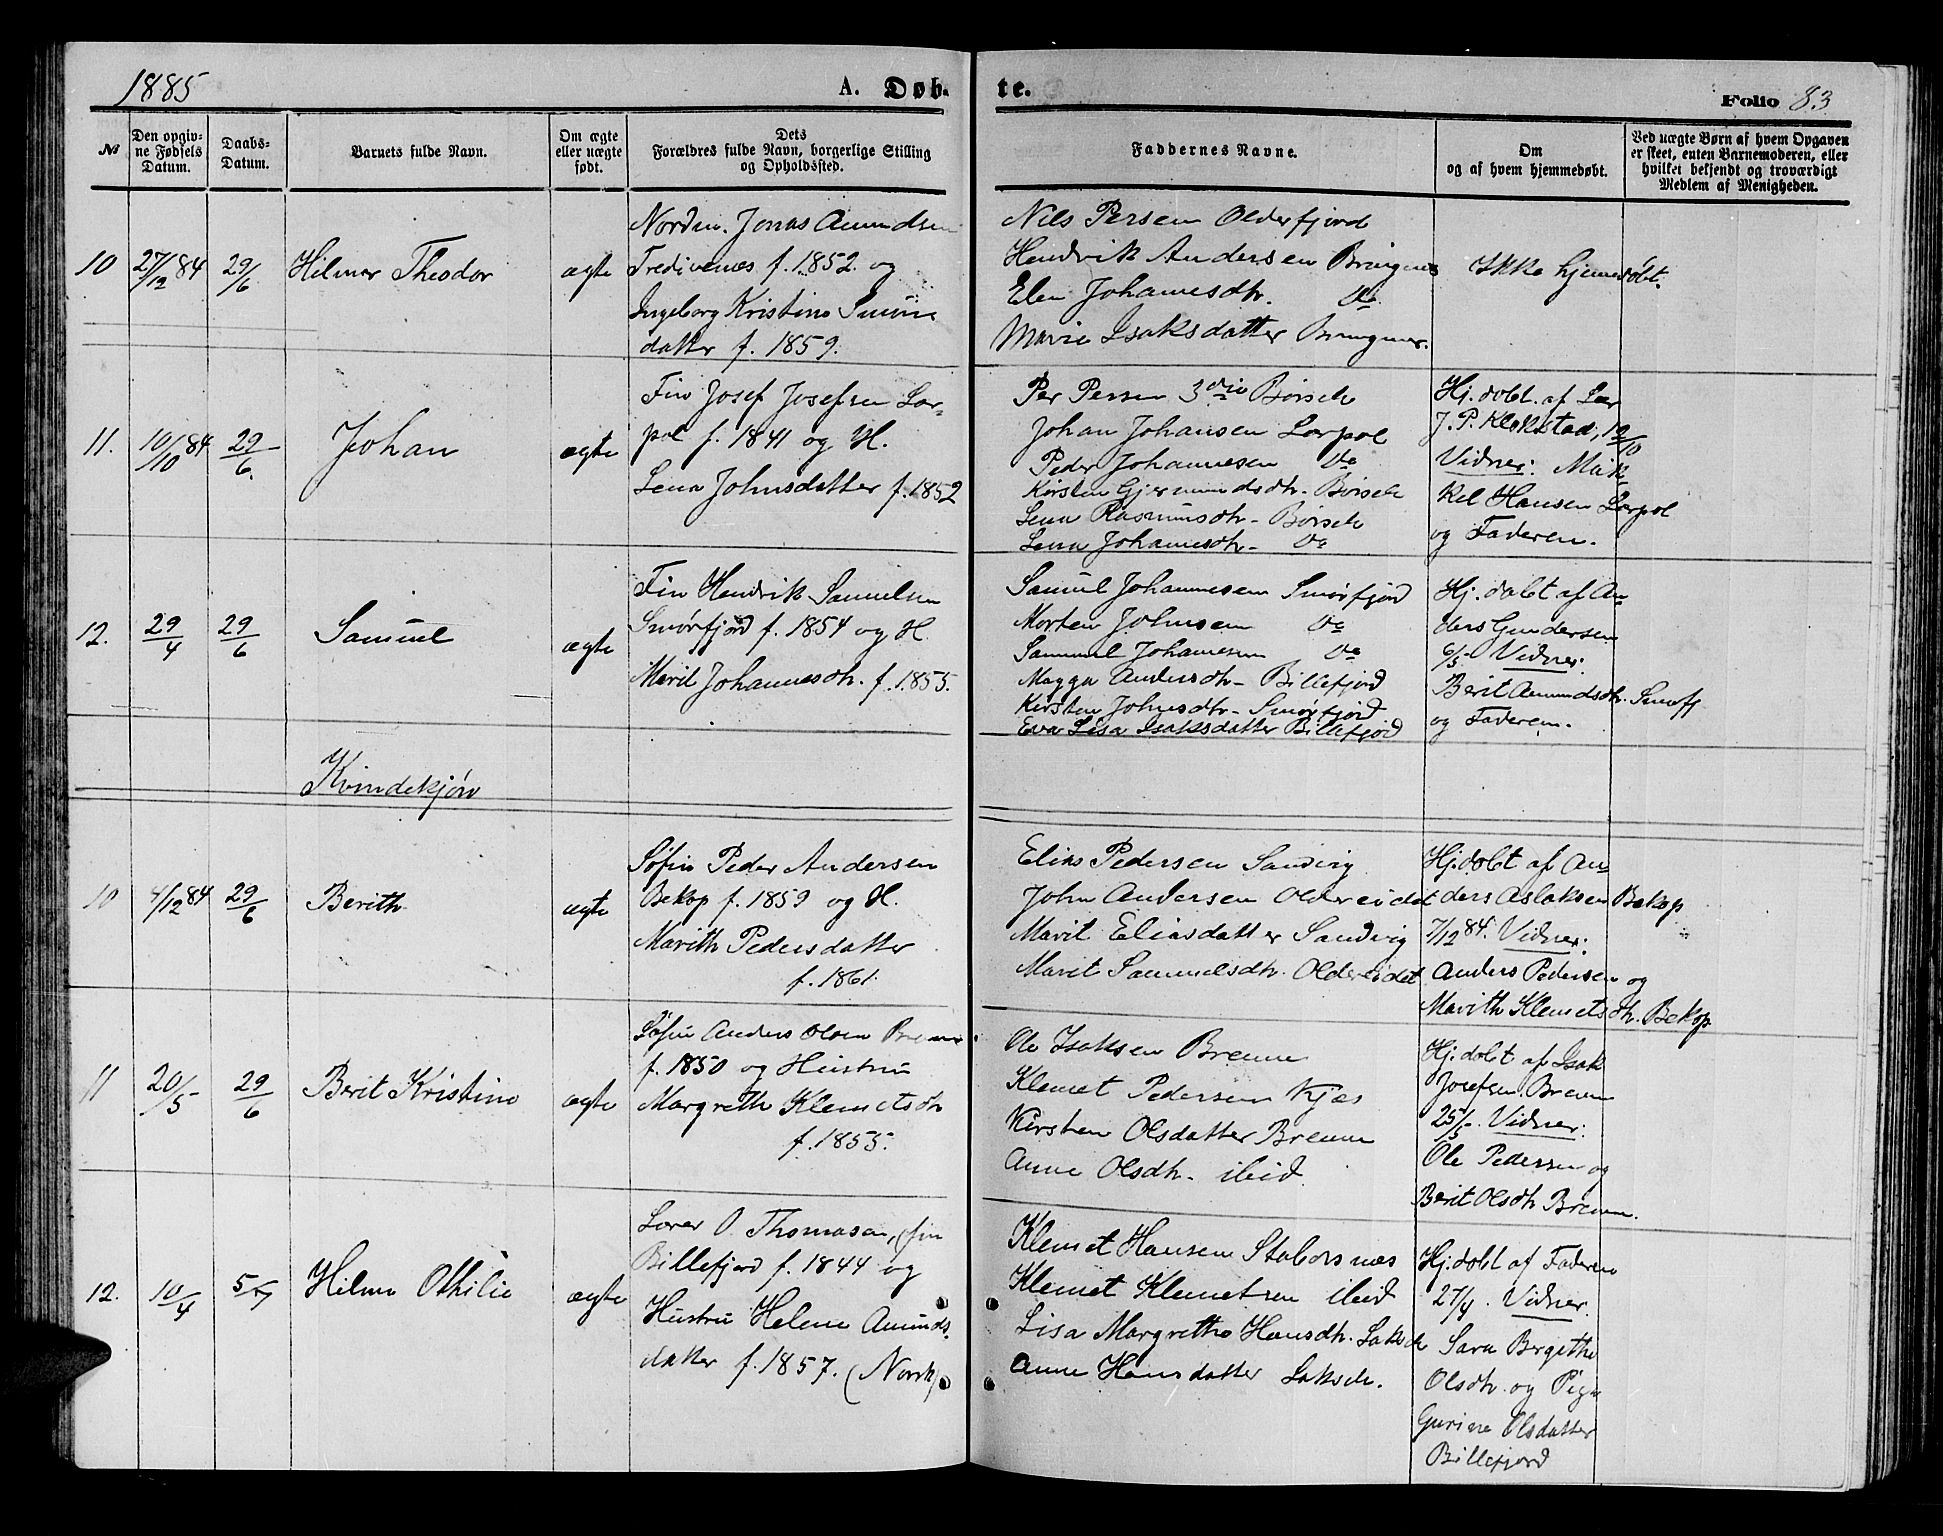 1885
A. Døb-
te.
Folio 83
№
Den opgiv-
ne Fødsels
Datum.
Daabs-
Datum.
Barnets fulde Navn.
Om ægte
eller uægte
født.
Dets
Forældres fulde Navn, borgerlige Stilling
og Opholdssted.
Faddernes Navne.
Om
og af hvem hjemmedøbt.
Ved uægte Børn af hvem Opgaven
er skeet, enten Barnemoderen, eller
hvilket bekjendt og troværdigt
Medlem af Menigheden.
10
27/12 84
29/6
Hilmar Theodor
ægte
Nordm. Jonas Amundsen
Tredivenæs f. 1852. og
Ingeborg Kristine Simons
datter f. 1859.
Nils Persen Olderfjord
Hendrik Andersen Bringnes
Elen Johannesdtr. Do
Marie Isaksdatter Bringnes.
Ikke hjemedöbt.
11.
10/10 84
29/6.
Johan
ægte
Fin Josef Josefsen Lar-
pol f. 1841 og H.
Lena Johnsdatter f. 1852
Per Persen 3die Börselv
Johan Johansen Larpol
Peder Johannesen Do
Kirsten Gjermundsdtr. Börselv
Lena Rasmusdtr. Börselv
Lena Johannesdtr. Do
Hj.dobt. af Lær
J. P. Klokstad, 12/10
Vidner: Mik
kel Hansen Larpol
og Faderen.
12.
29/4
29/6
Samuel
ægte
Fin Hendrik Samuelsen
Smørfjord f. 1854 og H.
Marit Johannesdtr. f. 1855.
Samuel Johannesen Smörfjord
Morten Johnsen Do
Sammul Johannesen Do
Magga Andersdtr. Billefjord
Kirsten Johnsdtr. Smörfjord
Eva Lisa Isaksdatter Billefjord
Hj. dobt af An-
ders Gundersen
6/5 Vidner:
Berit Amundsdtr. Smorfj
og Faderen.
Kvindekjön
10
4/12 84
29/6
Berith
ægte
Söfin Peder Andersen
Bekop f. 1859 og H.
Marith Pedersdatter
f. 1861.
Elias Pedersen Sandvig
John Andersen Oldereidet
Marit Eliasdatter Sandvig
Maret Sammelsdtr. Oldereidet
Hj.dobt af An-
ders Aslaksen Bekop
7/12 84. Vidner:
Anders Pedersen og
Marith Klemetsdtr. Bekop.
11
20/5
29/6
Berit Kristine
ægte
Söfin Anders Olsen Brenne
f. 1850 og Hustru
Margreth Klemetsdtr
f. 1855.
Ole Isaksen Brenne
Klemet Pedersen Kjæs
Kirsten Olsdatter Brenne
Anne Olsdtr. ibid
Hj.dobt af Isak
Josefsen. Brenne
25/5. Vidner:
Ole Pedersen og
Berit Olsdtr Brenne.
12.
10/4
5/7
Hilma Othilie
ægte
Lærer O. Thomasen, (fin
Billefjord f. 1844 og
Hustru Helene Amunds.
datter f. 1857. (Norsk)
Klemet Hansen Staborsnæs
Klemet Klemetsen ibid
Lisa Margrethe Hansdtr. Lakselv
Anne Hansdatter Lakselv.
Hj.dobt af Faderen
27/4. Vidner.
Sara Bergethe
Olsdtr. og Pige
Gurine Olsdatter
Billefjord